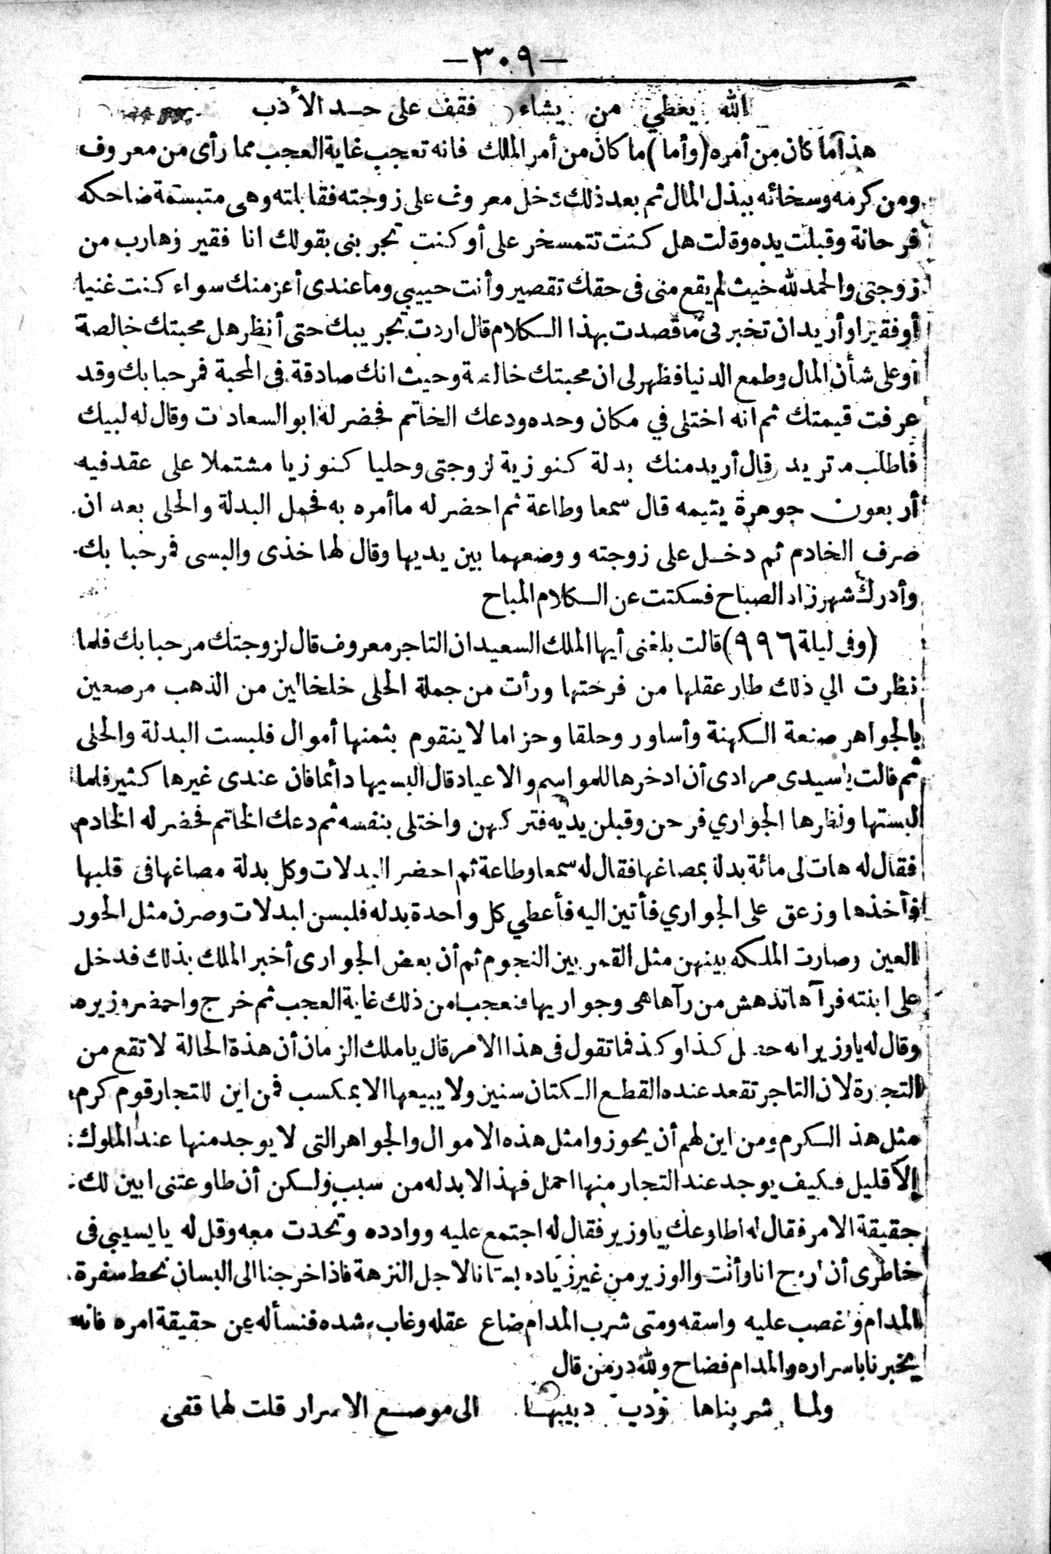 —٣٠٩—
الله يعطي من يشاء فقف على حد الأدب
هذا ما كان من أمره (وأما) ما كان من أمر الملك فانه تعجب غاية العجب مما رأى من معروف
ومن كرمه وسخائه ببذل المال ثم بعد ذلك دخل معروف على زوجته فقابلته وهى متبسمة ضاحكه
فرحانة وقبلت يده وقالت هل كنت تتمسخر على أو كنت تجربنى بقولك انا فقير وهارب من
زوجتى والحمد لله حيث لم يقع منى فى حقك تقصير وأنت حبيبي وما عندى أعز منك سواء كنت غنيا
أو فقيرا وأريد ان تخبرنى ما قصدت بهذا الكلام قال اردت تجريبك حتى أنظر هل محبتك خالصة
أو على شأن المال وطمع الدنيا فظهر لى ان محبتك خالصة وحيث انك صادقة فى المحبة فمرحبا بك وقد
عرفت قيمتك ثم انه اختلى في مكان وحده ودعك الخاتم فحضر له ابو السعادات وقال له لبيك
فاطلب ما تريد قال أريد منك بدلة كنوزية لزوجتى وحليا كنوزيا مشتملا على عقد فيه
أربعون جوهرة يتيمه قال سمعا وطاعة ثم احضر له ما أمره به فحمل البدلة والحلى بعد ان
صرف الخادم ثم دخل على زوجته ووضعهما بين يديها وقال لها خذى والبسى فمرحبا بك
وأدرك شهرزاد الصباح فسكتت عن الكلام المباح
(وفى ليلة ٩٩٦) قالت بلغنى أيها الملك السعيد ان التاجر معروف قال لزوجتك مرحبا بك فلما
نظرت الي ذلك طار عقلها من فرحتها ورأت من جملة الحلى خلخالين من الذهب مرصعين
بالجواهر صنعة الكهنة وأساور وحلقا وحزاما لا يتقوم بثمنها أموال فلبست البدلة والحلى
ثم قالت يا سيدى مرادى أن ادخرها للمواسم والاعياد قال البسيها دائما فان عندى غيرها كثير فلما
البستها ونظرها الجواري فرحن وقبلن يديه فتركهن واختلى بنفسه ثم دعك الخاتم فحضر له الخادم
فقال له هات لى مائة بدلة بمصاغها فقال له سمعا وطاعة ثم احضر البدلات وكل بدلة مصاغها فى قلبها
فآخذها وزعق على الجواري فأتين اليه فأعطي كل واحدة بدله فلبسن البدلات وصرن مثل الحور
العين وصارت الملكه بينهن مثل القمر بين النجوم ثم أن بعض الجوارى أخبر الملك بذلك فدخل
على ابنته فرآها تدهش من رآها هى وجواريها فتعجب من ذلك غاية العجب ثم خرج واحضر وزيره
وقال له يا وزير انه حصل كذا وكذا فما تقول فى هذا الامر قال يا ملك الزمان أن هذة الحالة لا تقع من
التجارة لان التاجر تقعد عنده القطع الكتان سنين ولا يبيعها الا بمكسب فمن اين للتجار قوم كرم
مثل هذا الكرم ومن اين لهم أن يحوزوا مثل هذه الاموال والجواهر التى لا يوجد منها عند الملوك
إلا قليل فكيف يوجد عند التجار منها احمل فهذا لا بد له من سبب ولكن أن طاوعتنى ابين لك
حقيقة الامر فقال له اطاوعك يا وزير فقال له اجتمع عليه ووادده وتحدث معه وقل له يا نسيبي فى
خاطرى أن اروح انا وأنت والوزير من غير زياده بستانا لاجل النزهة فاذا خرجنا الى البستان نحط سفرة
المدام واغصب عليه واسقه ومتى شرب المدام ضاع عقله وغاب رشده فنسأله عن حقيقة امره فانه
يخبرنا باسراره والمدام فضاح ولله در من قال
ولما شربناها ودب دبيبها الى موضع الاسرار قلت لها قفى